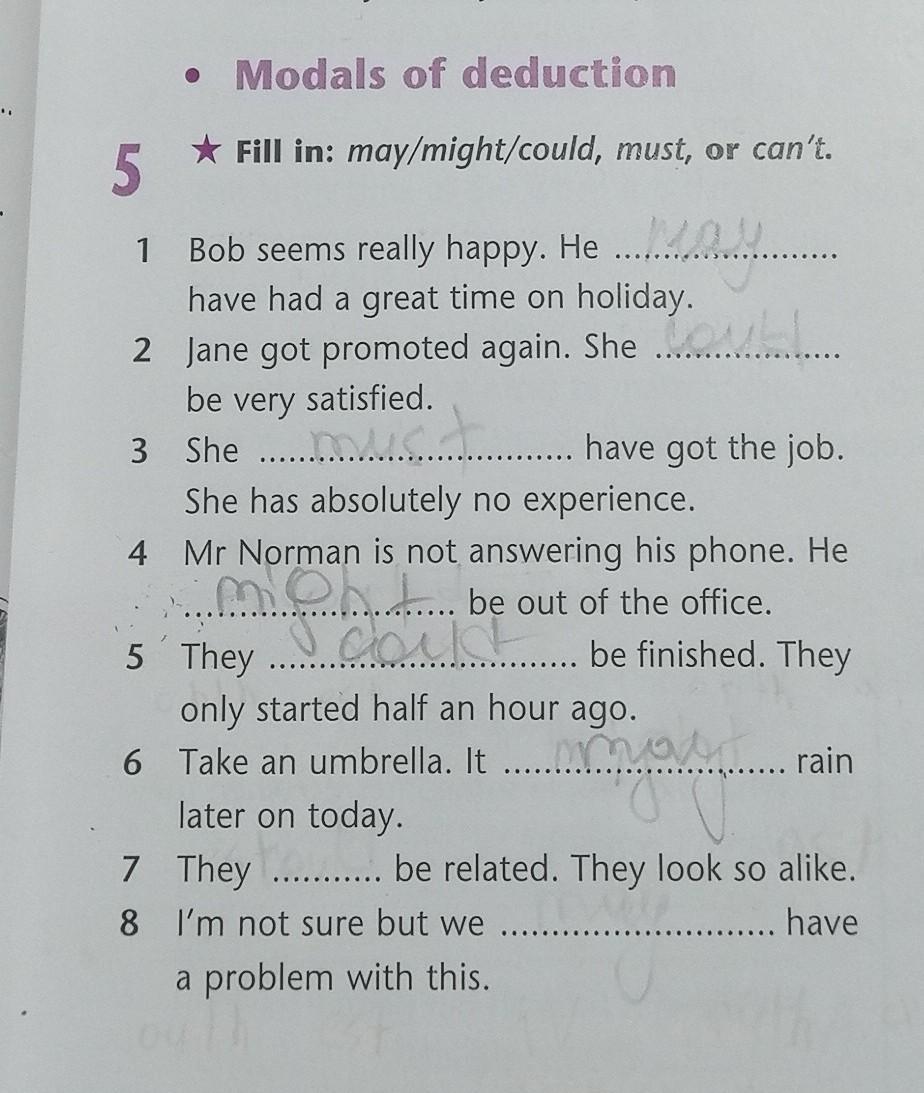 • Modals of deduction
5 ★ Fill in: may/might/could, must, or can't.
1 Bob seems really happy. He may
have had a great time on holiday.
2 Jane got promoted again. She could
be very satisfied.
3 She must have got the job.
She has absolutely no experience.
4 Mr Norman is not answering his phone. He
might be out of the office.
5 They be finished. They
only started half an hour ago.
6 Take an umbrella. It rain
later on today.
7 They be related. They look so alike.
8 I'm not sure but we have
a problem with this.